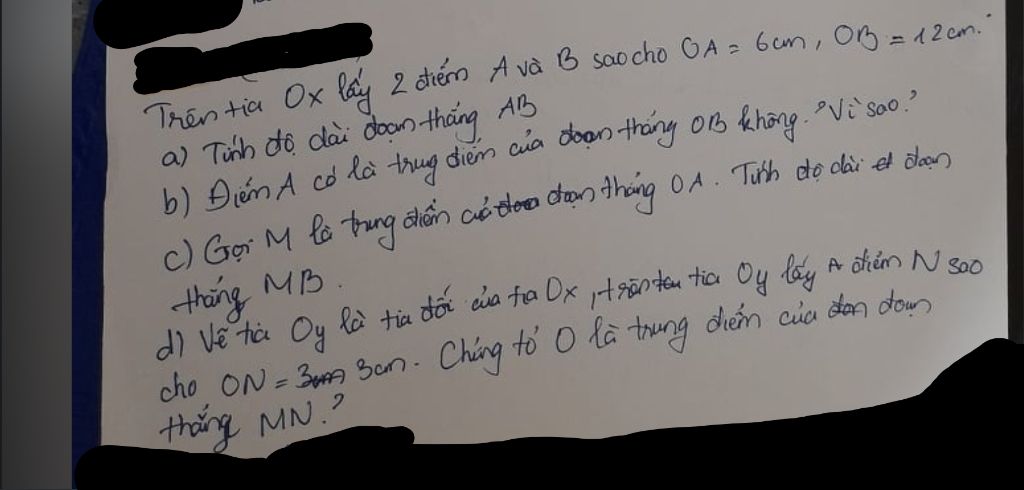 Trên tia Ox lấy 2 điểm A và B sao cho OA = 6cm, OB = 12cm.
a) Tính độ dài đoạn thẳng AB
b) Điểm A có là trug điểm của đoạn thẳng OB không? Vì sao?
c) Gọi M là trung điểm của đoạn thẳng OA. Tính độ dài đoạn
thẳng MB.
d) Vẽ tia Oy là tia đối của tia Ox, trên tia Oy lấy điểm N sao
cho ON = 3cm. Chứng tỏ O là trung điểm của đoạn
thẳng MN?